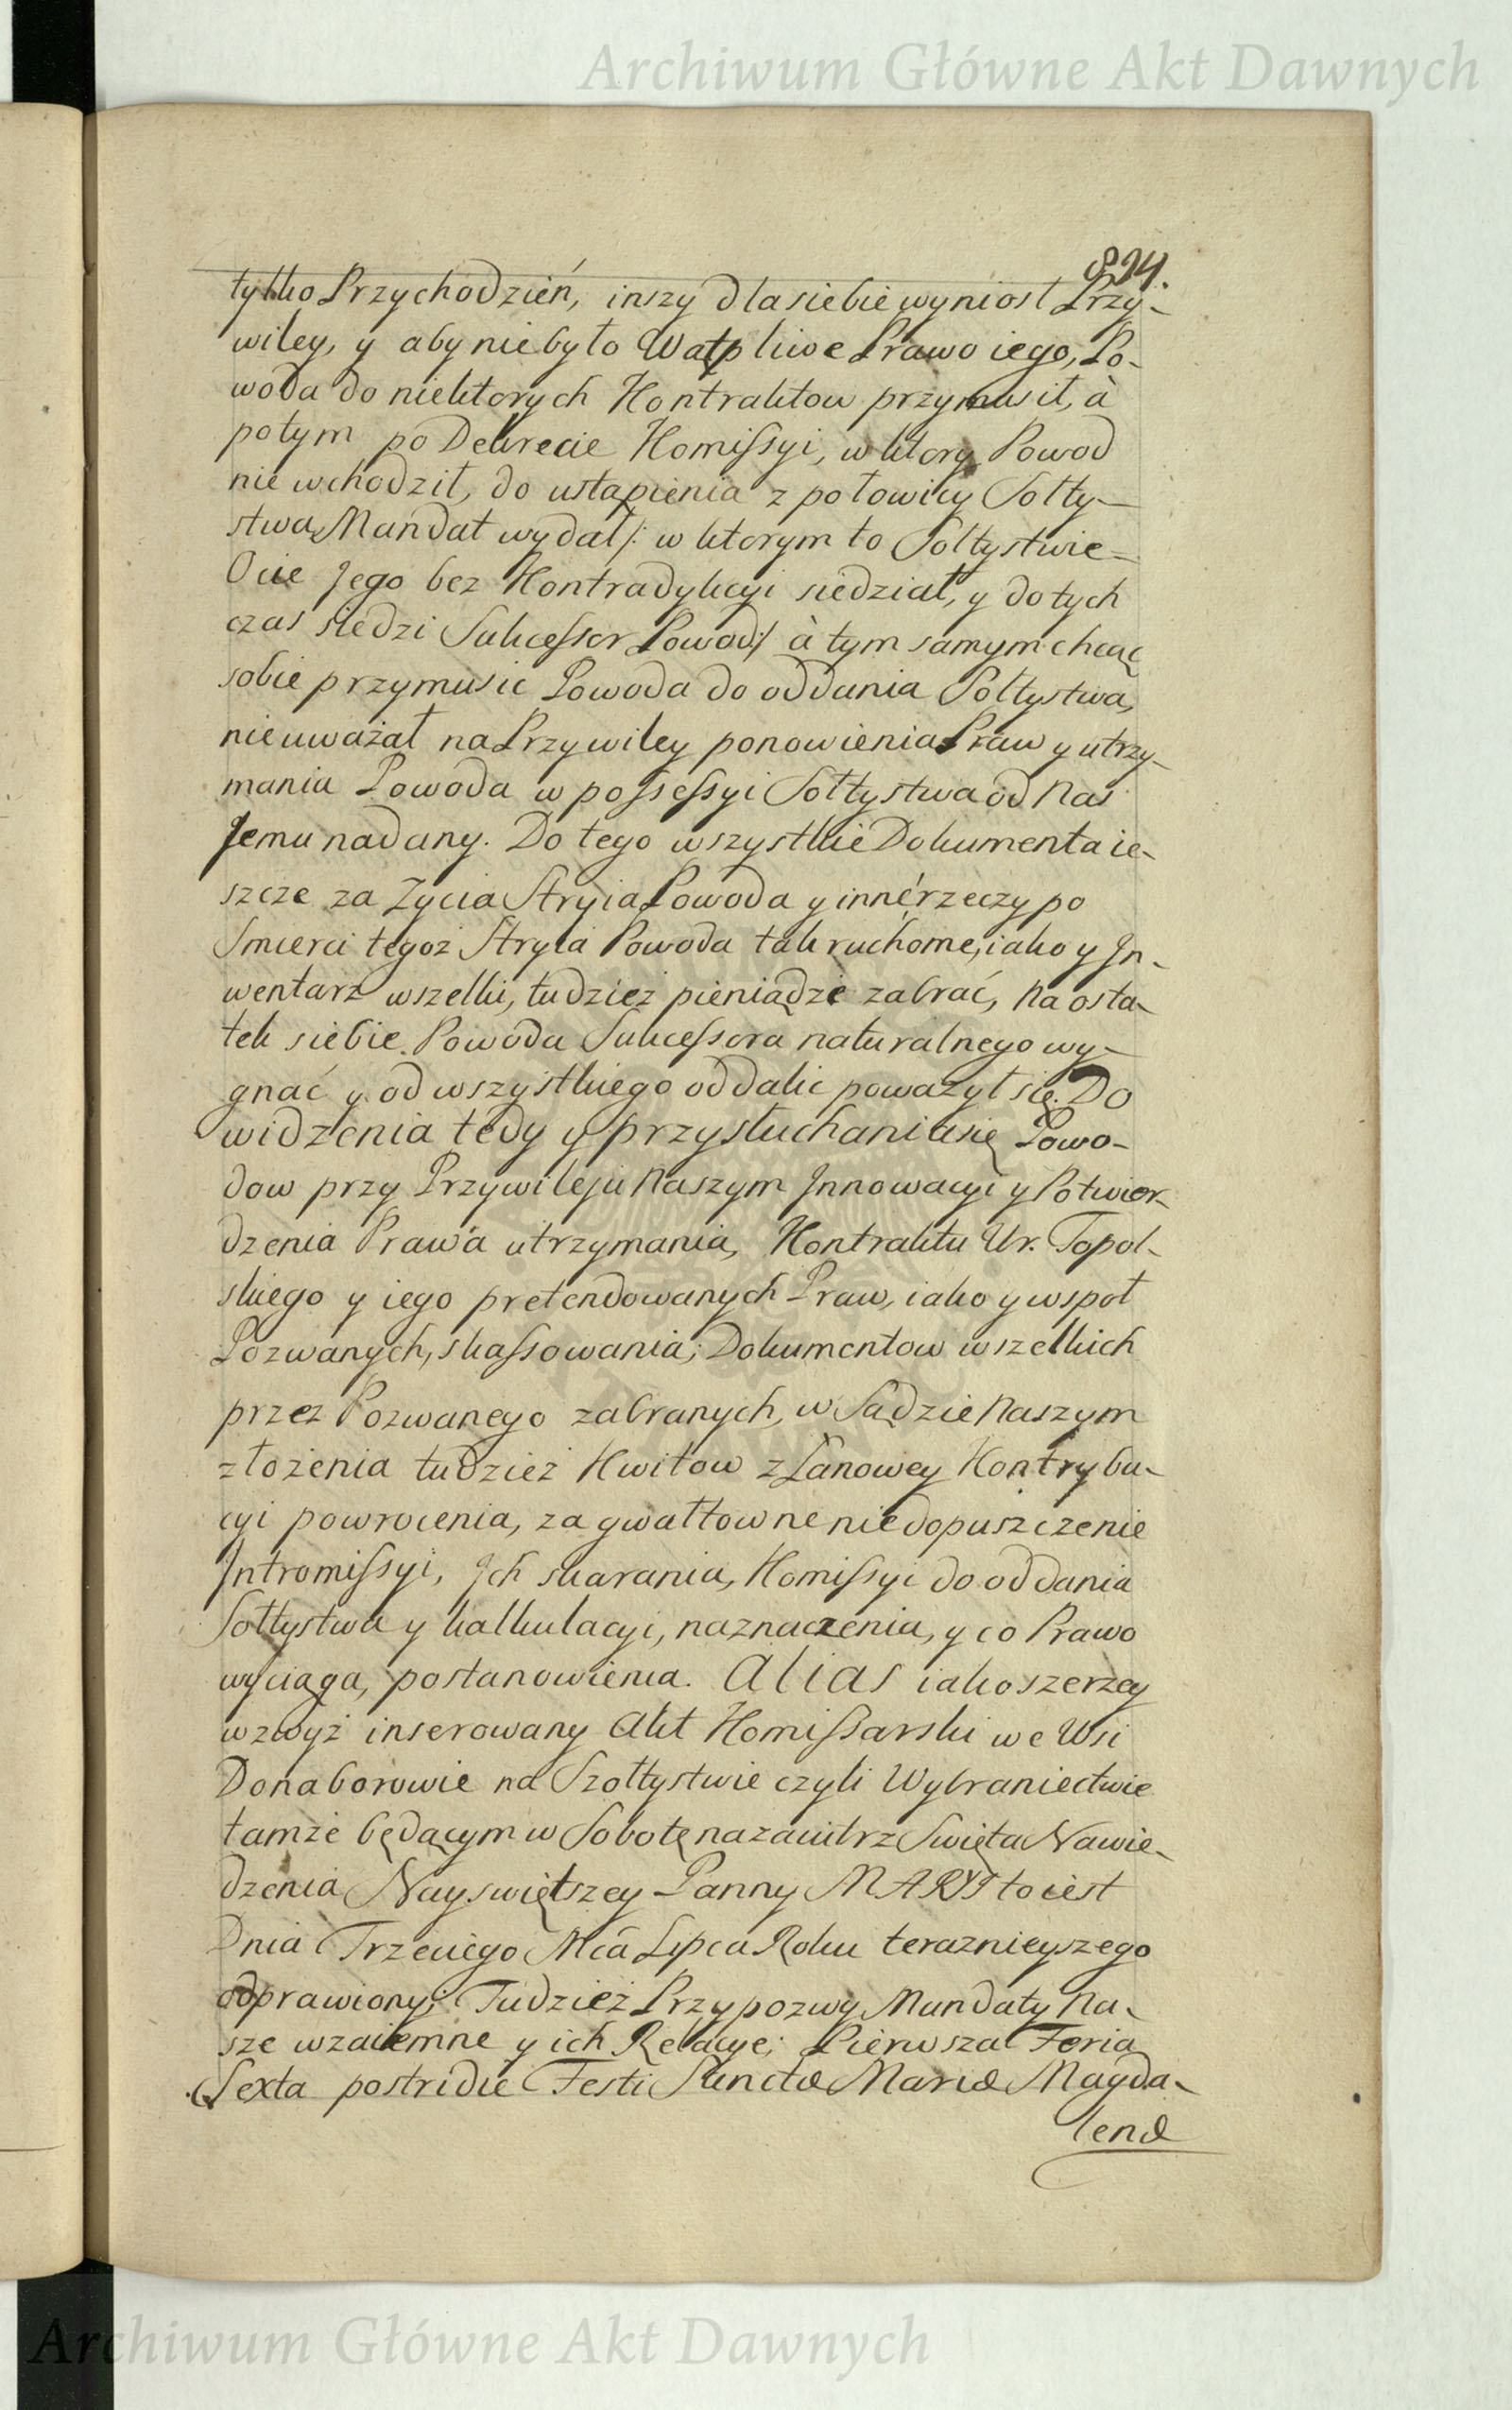 Archiwum Główne Akt Dawnych
824.
tylko Przychodzień, inszy dla siebie wyniosł Przy-
wiley, y aby nie było Wątpliwe Prawo iego, Po-
woda do niektorych Kontraktow przymusił, à
potym po Dekrecie Komissyi, w ktory Powod
nie wchodził, do ustąpienia z połowicy Sołty-
stwa, Mandat wydał /: w ktorym to Sołtystwie
Ociec Jego bez Kontradykcyi siedział, y do tych
czas siedzi Sukcessor Powod :/ à tym samym chcąc
sobie przymusic Powoda do oddania Sołtystwa,
nie uważał na Przywiley ponowienia Praw y utrzy-
mania Powoda w possessyi Sołtystwa od Nas
Jemu nadany. Do tego wszystkie Dokumenta ie-
szcze za Zycia Stryia Powoda y inne rzeczy po
Smierci tegoż Stryia Powoda tak ruchome, iako y In-
wentarz wszelki, tudzież pieniądze zabrać, na osta-
tek siebie Powoda Sukcessora naturalnego wy-
gnać y od wszystkiego oddalic poważył się. Do
widzenia tedy y przysłuchania się Powo-
dow przy Przywileju Naszym Innowacyi y Potwier-
dzenia Prawa utrzymania, Kontraktu Ur. Topol-
skiego y iego pretendowanych Praw, iako y wspoł
Pozwanych, skassowania; Dokumentow wszelkich
przez Pozwanego zabranych, w Sądzie Naszym
złożenia tudzież Kwitow z Łanowey Kontrybu-
cyi powrocenia, za gwałtowne niedopuszczenie
Intromissyi, Ich skarania, Komissyi do oddania
Sołtystwa y kalkulacyi, naznaczenia, y co Prawo
wyciąga, postanowienia. Alias iako szerzey
wzwyż inserowany Akt Komissarski we Wsi
Donaborowie na Szołtystwie czyli Wybraniectwie
tamże będącym w Sobotę nazaiutrz Swięta Nawie-
dzenia Nayswiętszey Panny MARYI to iest
Dnia Trzeciego Mca Lipca Roku teraznieyszego
odprawiony; Tudzież Przypozwy Mandaty Na-
sze wzaiemne y ich Relacye; Pierwsza Feria
Sexta postridie Festi Sanctæ Mariæ Magda-
lenæ
Archiwum Główne Akt Dawnych